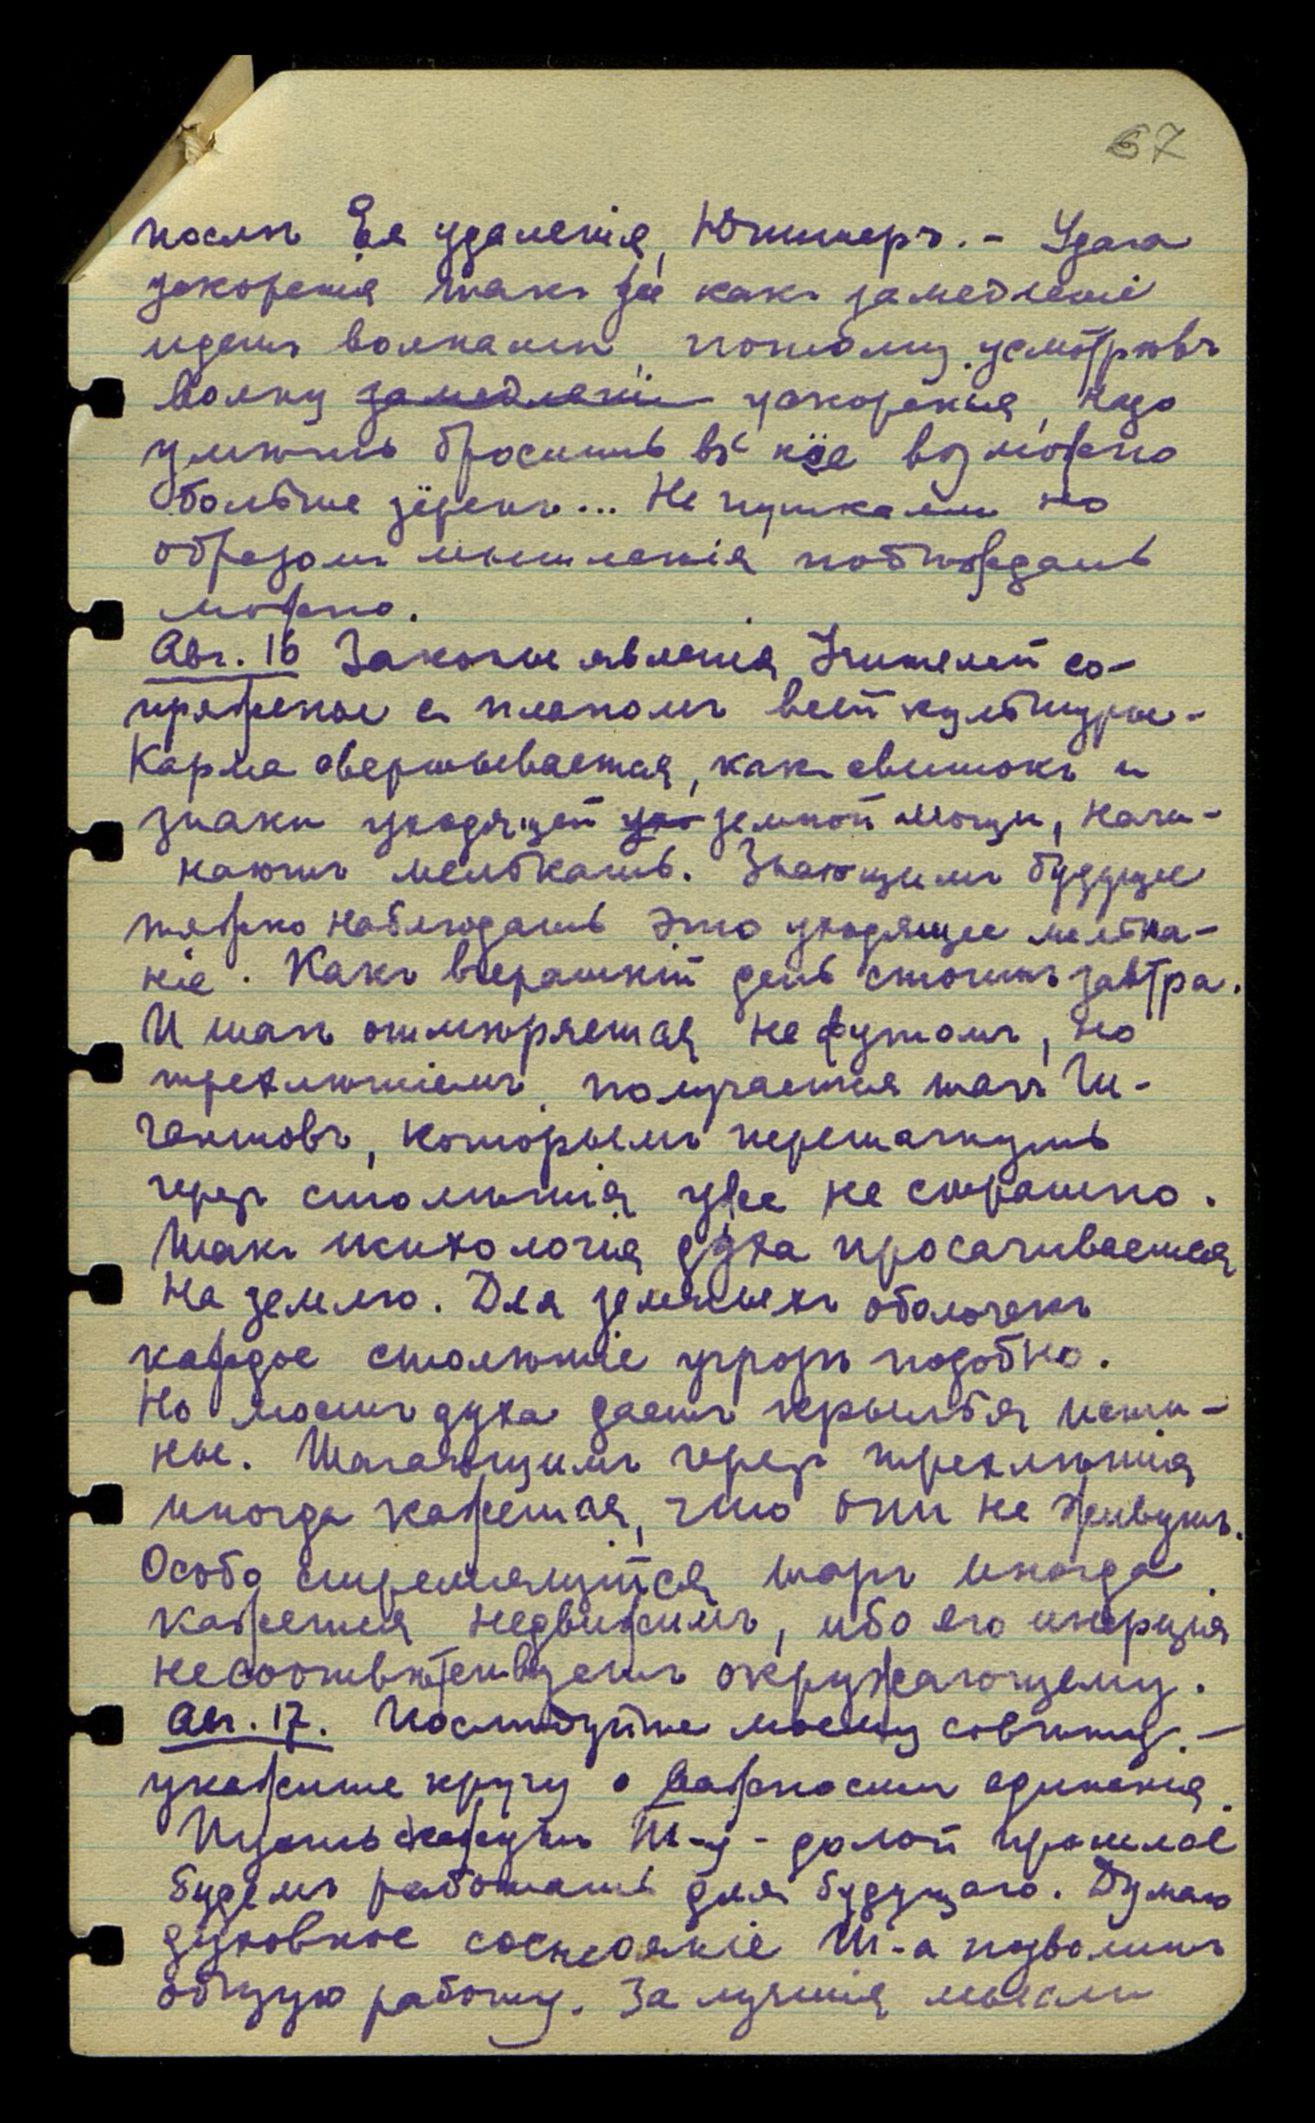 67
послѣ Ея удаленія, Юпитеръ. - Удача
ускоренія такъ же какъ замедленіе
идетъ волнами, потому усмотрѣвъ
волну замедленія ускоренія, надо
умѣть бросить въ нее возможно
больше зёренъ... Не пушками но
образомъ мышленія побѣждать
можно.
Авг. 16 Законы явленія Учителей со-
пряжены съ планомъ всей культуры. -
Карма свертывается, какъ свитокъ и
знаки уходящей ухо земной мощи, начи-
наютъ мелькать. Знающимъ будущее
тяжко наблюдать это уходящее мелька-
ніе. Какъ вчерашній день стоитъ завтра.
И шагъ отмѣряется не футомъ, но
трехлѣтіемъ, получается шагъ Ги-
гантовъ, которымъ перешагнуть
черезъ столѣтія уже не страшно.
Такъ психологія духа просачивается
на землю. Для земныхъ оболочекъ
каждое столѣтіе угрозѣ подобно.
Но мостъ духа даетъ крылья исти-
ны. Шагающимъ черезъ трехлѣтія
иногда кажется, что они не живутъ.
Особо стремящійся шаръ иногда
кажется недвижимъ, ибо его инерція
несоотвѣтствуетъ окружающему.
Авг. 17. Послѣдуйте моему совѣту. -
укажите кругу о важности единенія.
Пусть скажутъ Т-у - долой прошлое
будемъ работать для будущаго. Думаю
духовное состояніе Т-а позволитъ
общую работу. За лучшія мысли